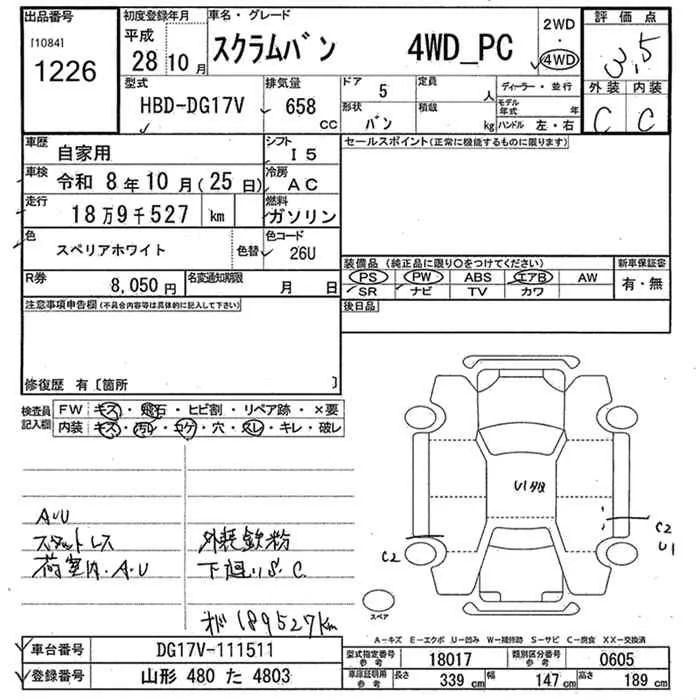 出品番号
[1084]
1226
初度登録年月
平成
28 10月
車名・グレード
スクラムバン 4WD_PC
2WD
・
4WD
評価点
3,5
外装 内装
C C
型式
HBD-DG17V
排気量
658
CC
ドア
5
定員
人
形状
バン
積載
kg
ディーラー・並行
モデル年式 年
ハンドル 左・右
車歴
自家用
シフト
I5
車検
令和 8年10月(25日)
冷房
AC
走行
18万9千527 km
燃料
ガソリン
色
スペリアホワイト
色替
色コード
26U
R券
8,050円
名変通知期限
月 日
セールスポイント(正常に機能するものに限ります)
装備品(純正品に限り○をつけてください)
新車保証書
PS PW ABS エアB AW
有・無
SR ナビ TV カワ
後日品
注意事項申告欄(不具合内容等は具体的に記入して下さい)
修復歴 有〔箇所 〕
検査員記入欄
FW キズ・飛石・ヒビ割・リペア跡・×要
内装 キズ・汚レ・コゲ・穴・スレ・キレ・破レ
A・U
スタットレス
荷室内・A・U
外装鉄粉
下廻りS.C.
189527km
U1
C2
U1
C2
スペア
A-キズ E-エクボ U-凹み W-補修跡 S-サビ C-腐食 XX-交換済
車台番号 DG17V-111511
登録番号 山形 480 た 4803
型式指定番号 参考 18017
類別区分番号 参考 0605
車庫証明用 参考 長さ 339 cm 幅 147 cm 高さ 189 cm